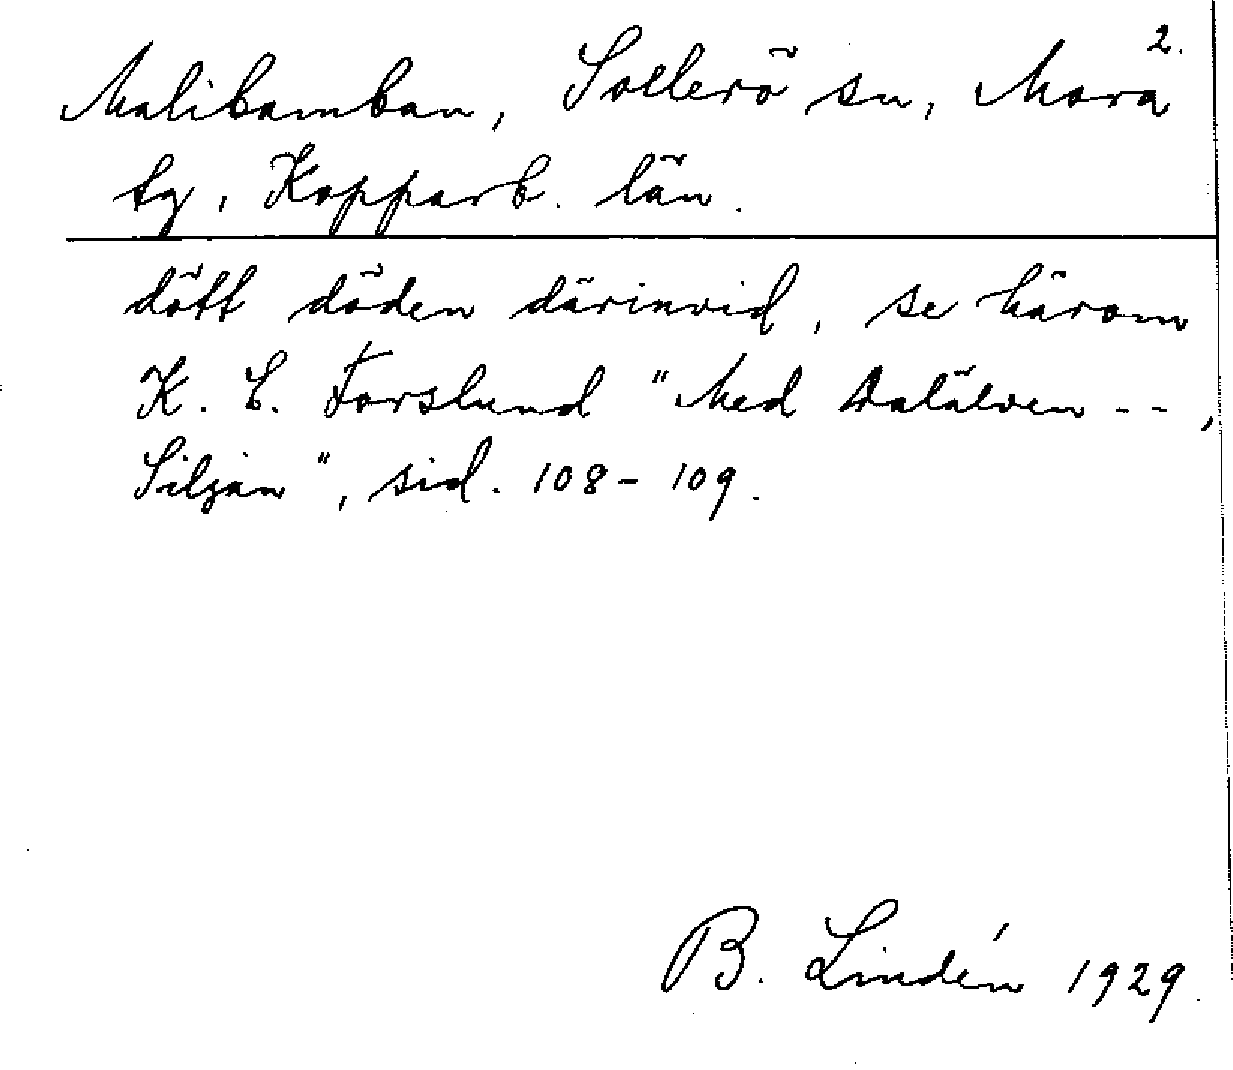 2.
Malibamban, Sollerö sn, Mora
tg, Kopparb. län.
dött döden därinvid, se härom
K. E. Forslund "Med Dalälven - - ,
Siljan", sid. 108-109.
B. Lindén 1929.